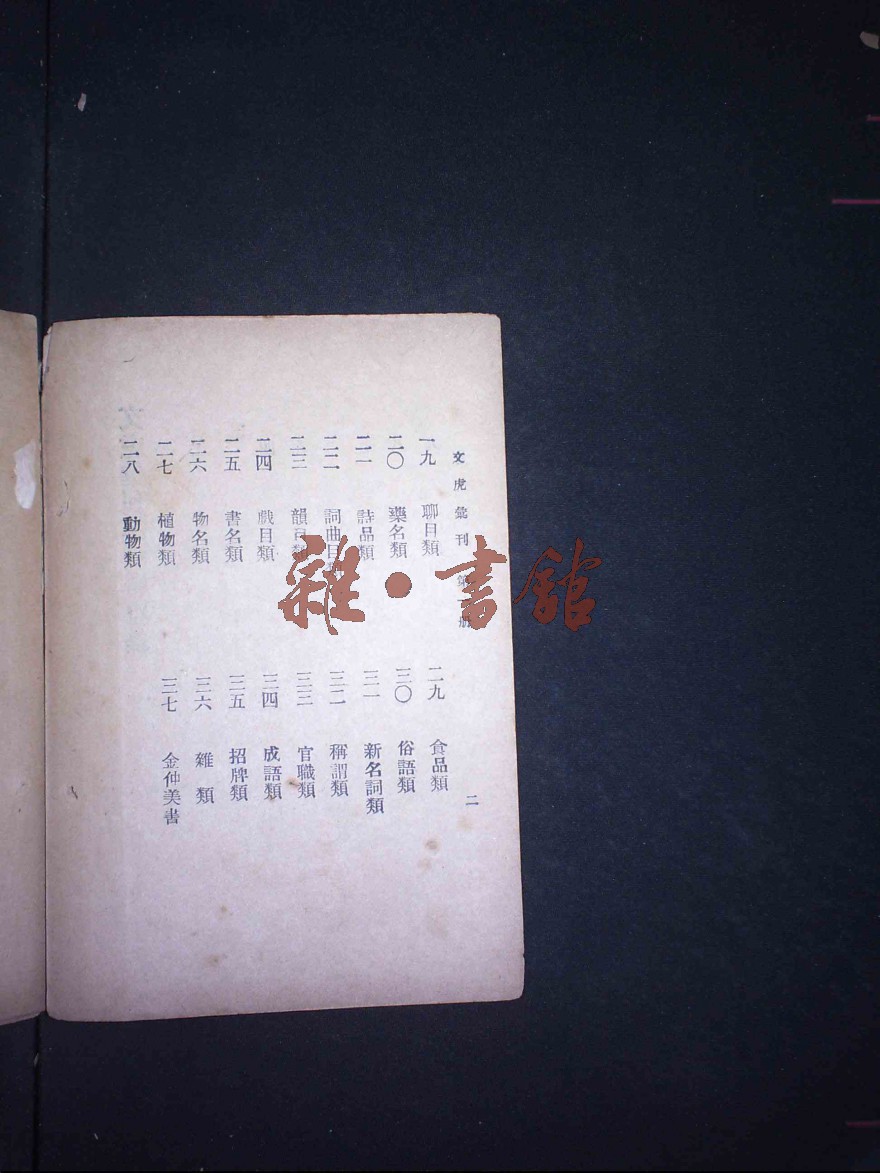 文虎彙刊 第一册
二
一九 聊目類
二〇 藥名類
二一 詩品類
二二 詞曲目類
二三 韻目類
二四 戲目類
二五 書名類
二六 物名類
二七 植物類
二八 動物類
二九 食品類
三〇 俗語類
三一 新名詞類
三二 稱謂類
三三 官職類
三四 成語類
三五 招牌類
三六 雜類
三七 金仲美書
雜·書館